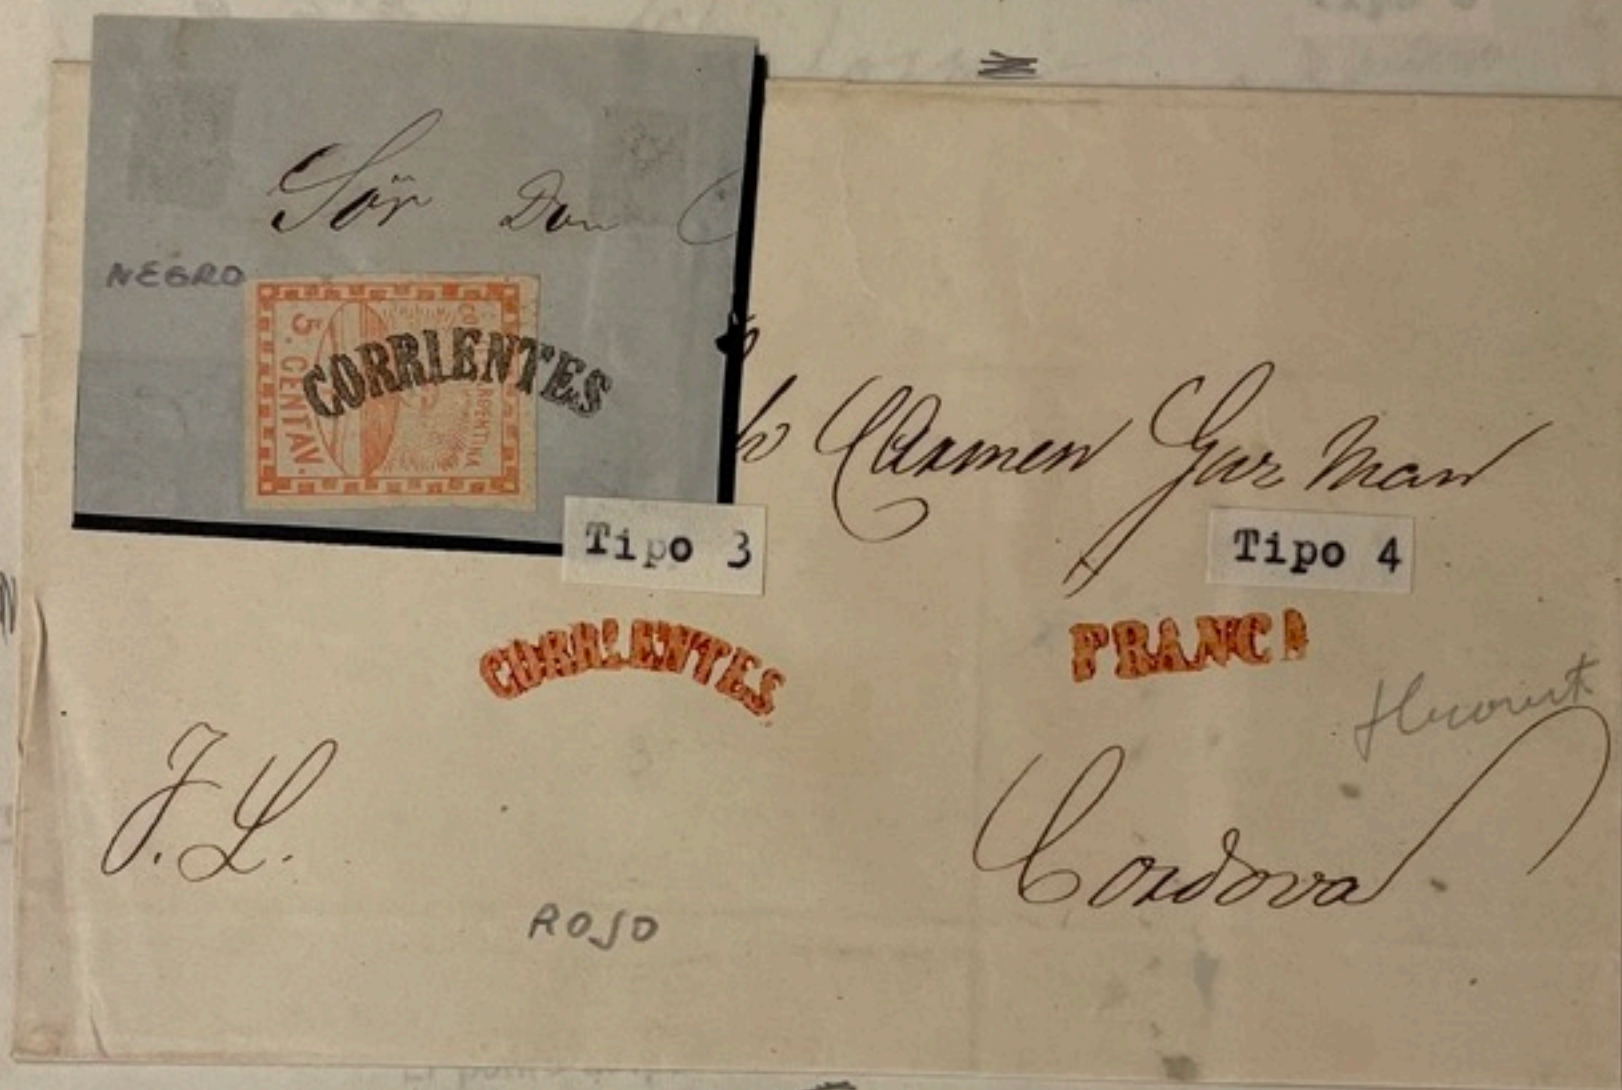 Sör Don C
NEGRO
5. CENTAV.
CORRIENTES
Carmen Guz Man
Tipo 3
Tipo 4
CORRIENTES
FRANCO
J. L.
Cordova
ROJO